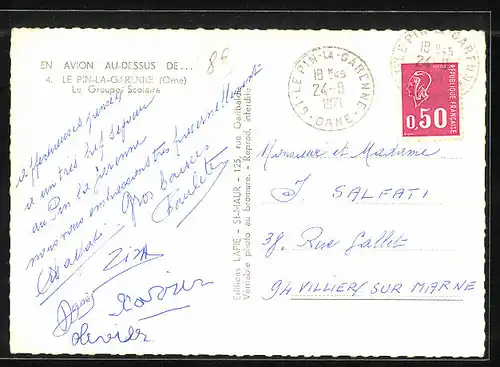 EN AVION AU-DESSUS DE...
4. LE PIN-LA-GARENNE (Orne)
Le Groupe Scolaire
86
affectueuses pensées
d'un très bref séjour
au Pin la Garenne
nous vous embrassons très fraternellement
Gros baisers
Zizi
Xavier
Olivier
Editions LAPIE - St-MAUR - 125, rue Garibaldi
Véritable photo au bromure - Reprod. interdite
61 LE PIN-LA-GARENNE
18 H45
24-8
1971
ORNE
61 LE PIN-LA-GARENNE
18 H45
24-8
POSTES
REPUBLIQUE FRANÇAISE
0,50
Monsieur et Madame
J. SALFATI
38. Rue Gallet
94 VILLIERS SUR MARNE